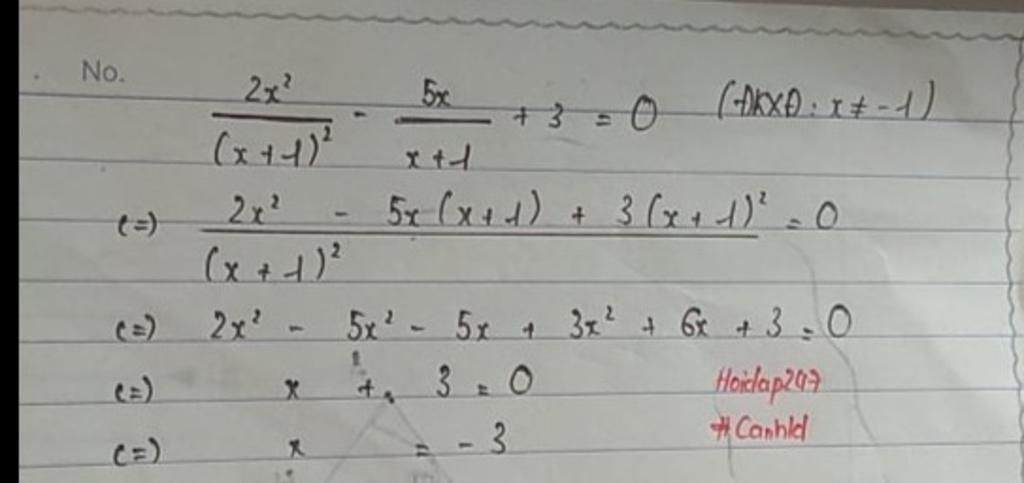 No.
2x²/(x+1)² - 5x/x+1 + 3 = 0 (ĐKXĐ: x ≠ -1)
<=> 2x² - 5x(x+1) + 3(x+1)²/(x+1)² = 0
<=> 2x² - 5x² - 5x + 3x² + 6x + 3 = 0
<=> x + 3 = 0
Hoidap247
<=> x = -3
#Canhld